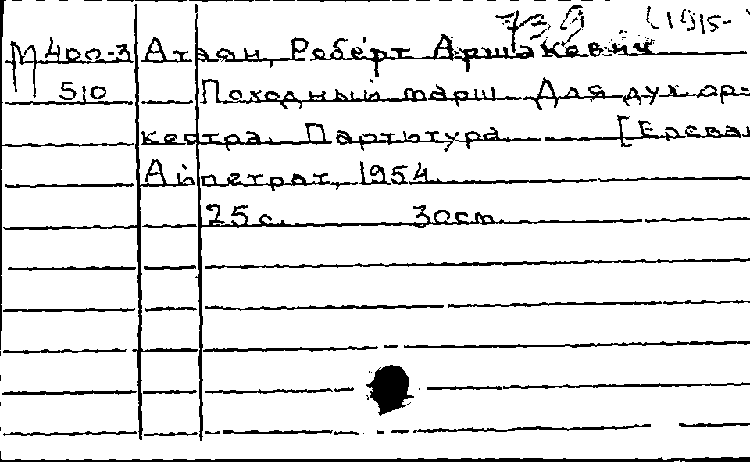 739 (1915-
М 400-3 Атаян, Роберт Аршакевич
510 Походный марш. Для дух. ор-
кестра. Партитура. [Ереван
Айпетрат, 1954.
25 с. 30 см.